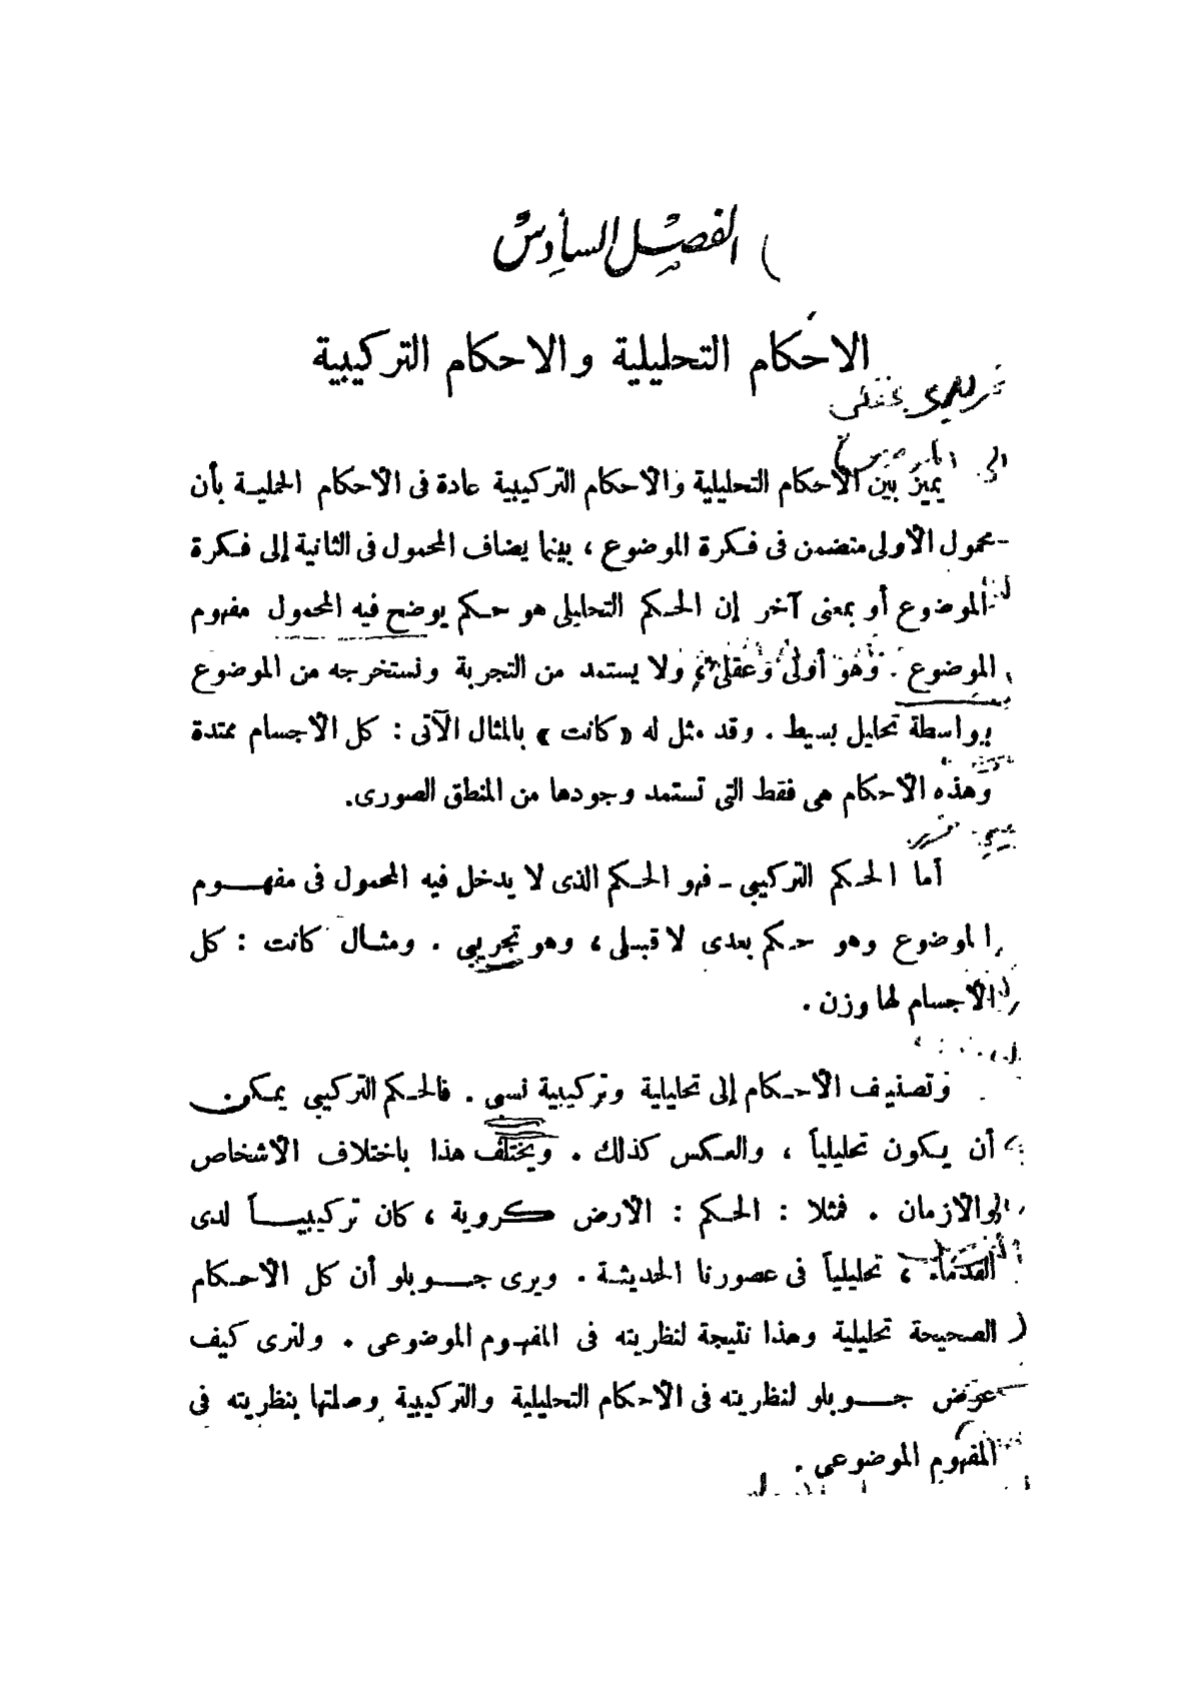 الفصل السادس
الاحكام التحليلية والاحكام التركيبية
يميز بين الأحكام التحليلية والأحكام التركيبية عادة فى الأحكام الحملية بأن
محمول الأولى متضمن فى فكرة الموضوع ، بينما يضاف المحمول فى الثانية إلى فكرة
الموضوع أو بمعنى آخر إن الحكم التحليلى هو حكم يوضح فيه المحمول مفهوم
الموضوع . وهو أولى وعقلى ، ولا يستمد من التجربة ونستخرجه من الموضوع
بواسطة تحليل بسيط . وقد مثل له «كانت» بالمثال الآتى : كل الأجسام ممتدة
وهذه الأحكام هى فقط التى تستمد وجودها من المنطق الصورى.
أما الحكم التركيبى - فهو الحكم الذى لا يدخل فيه المحمول فى مفهوم
الموضوع وهو حكم بعدى لا قبلى ، وهو تجريبى . ومثال كانت : كل
الأجسام لها وزن .
وتصنيف الأحكام إلى تحليلية وتركيبية نسبى . فالحكم التركيبى يمكن
أن يكون تحليلياً ، والعكس كذلك . ويختلف هذا باختلاف الأشخاص
والازمان . فمثلا : الحكم : الأرض كروية ، كان تركيبياً لدى
القدماء ، تحليلياً فى عصورنا الحديثة . ويرى جوبلو أن كل الأحكام
الصحيحة تحليلية وهذا نتيجة لنظريته فى المفهوم الموضوعى . ولنرى كيف
عرض جوبلو لنظريته فى الأحكام التحليلية والتركيبية وصلتها بنظريته فى
المفهوم الموضوعى .